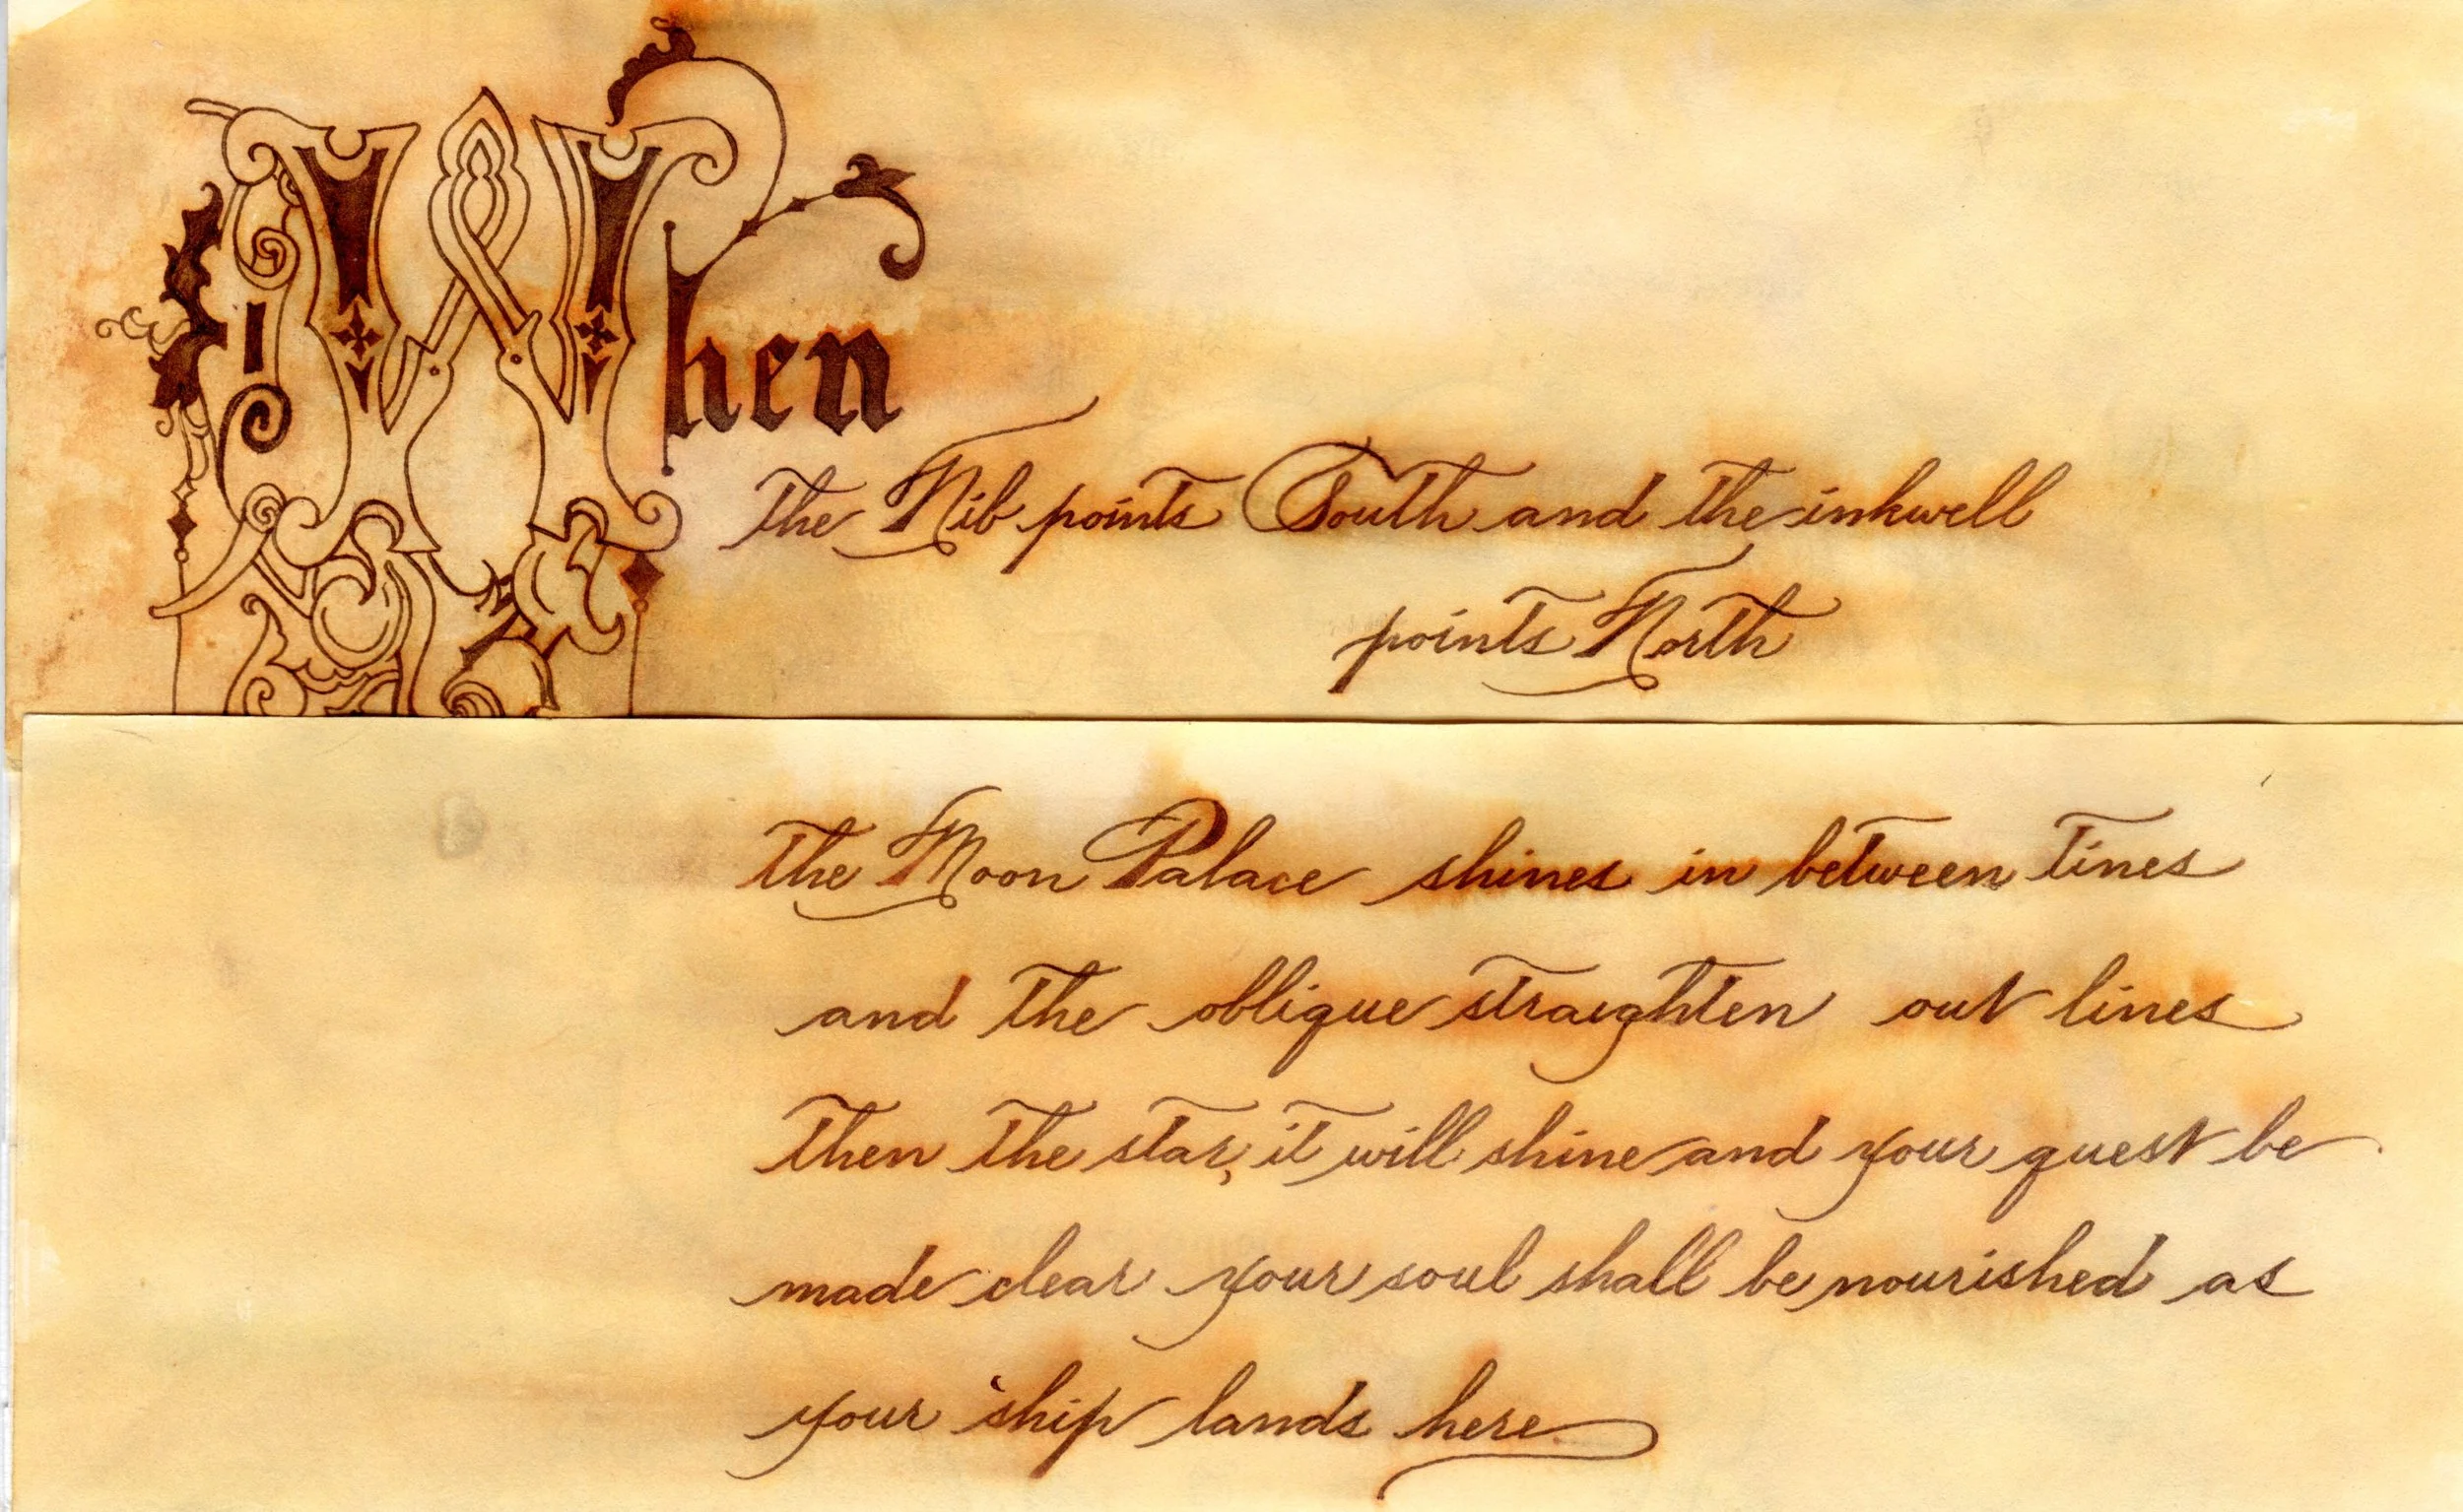 When
the Nib points South and the inkwell
points North
the Moon Palace shines in between tines
and the oblique straighten out lines
Then the star, it will shine and your quest be
made clear your soul shall be nourished as
your ship lands here